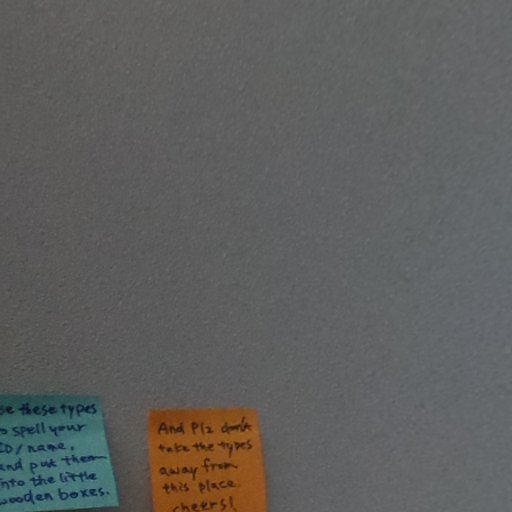 se these types
o spell your
ID/name,
and put them
into the little
wooden boxes.
And Plz don't
take the types
away from
this place.
cheers!